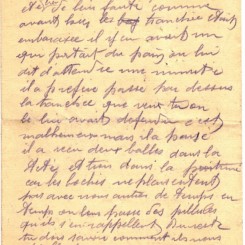 fauté comme
avant hier le tranchée était
embarassé il y en avant un
qui portait du pain on lui
dit d'attendre une minute
il a préféré passé par dessus
la tranchée que veux tu on
le lui avait défendu c'est
malheureux mais il a passé
il a recu deux balles dans la
tête et tien dans la poitrine
car les boches ne plaisentent
pas avec nous autres de temps en
temps on leur passe des pillules
qu'ils s'en rappellent Suzette
tu dois savoir comment ils nous